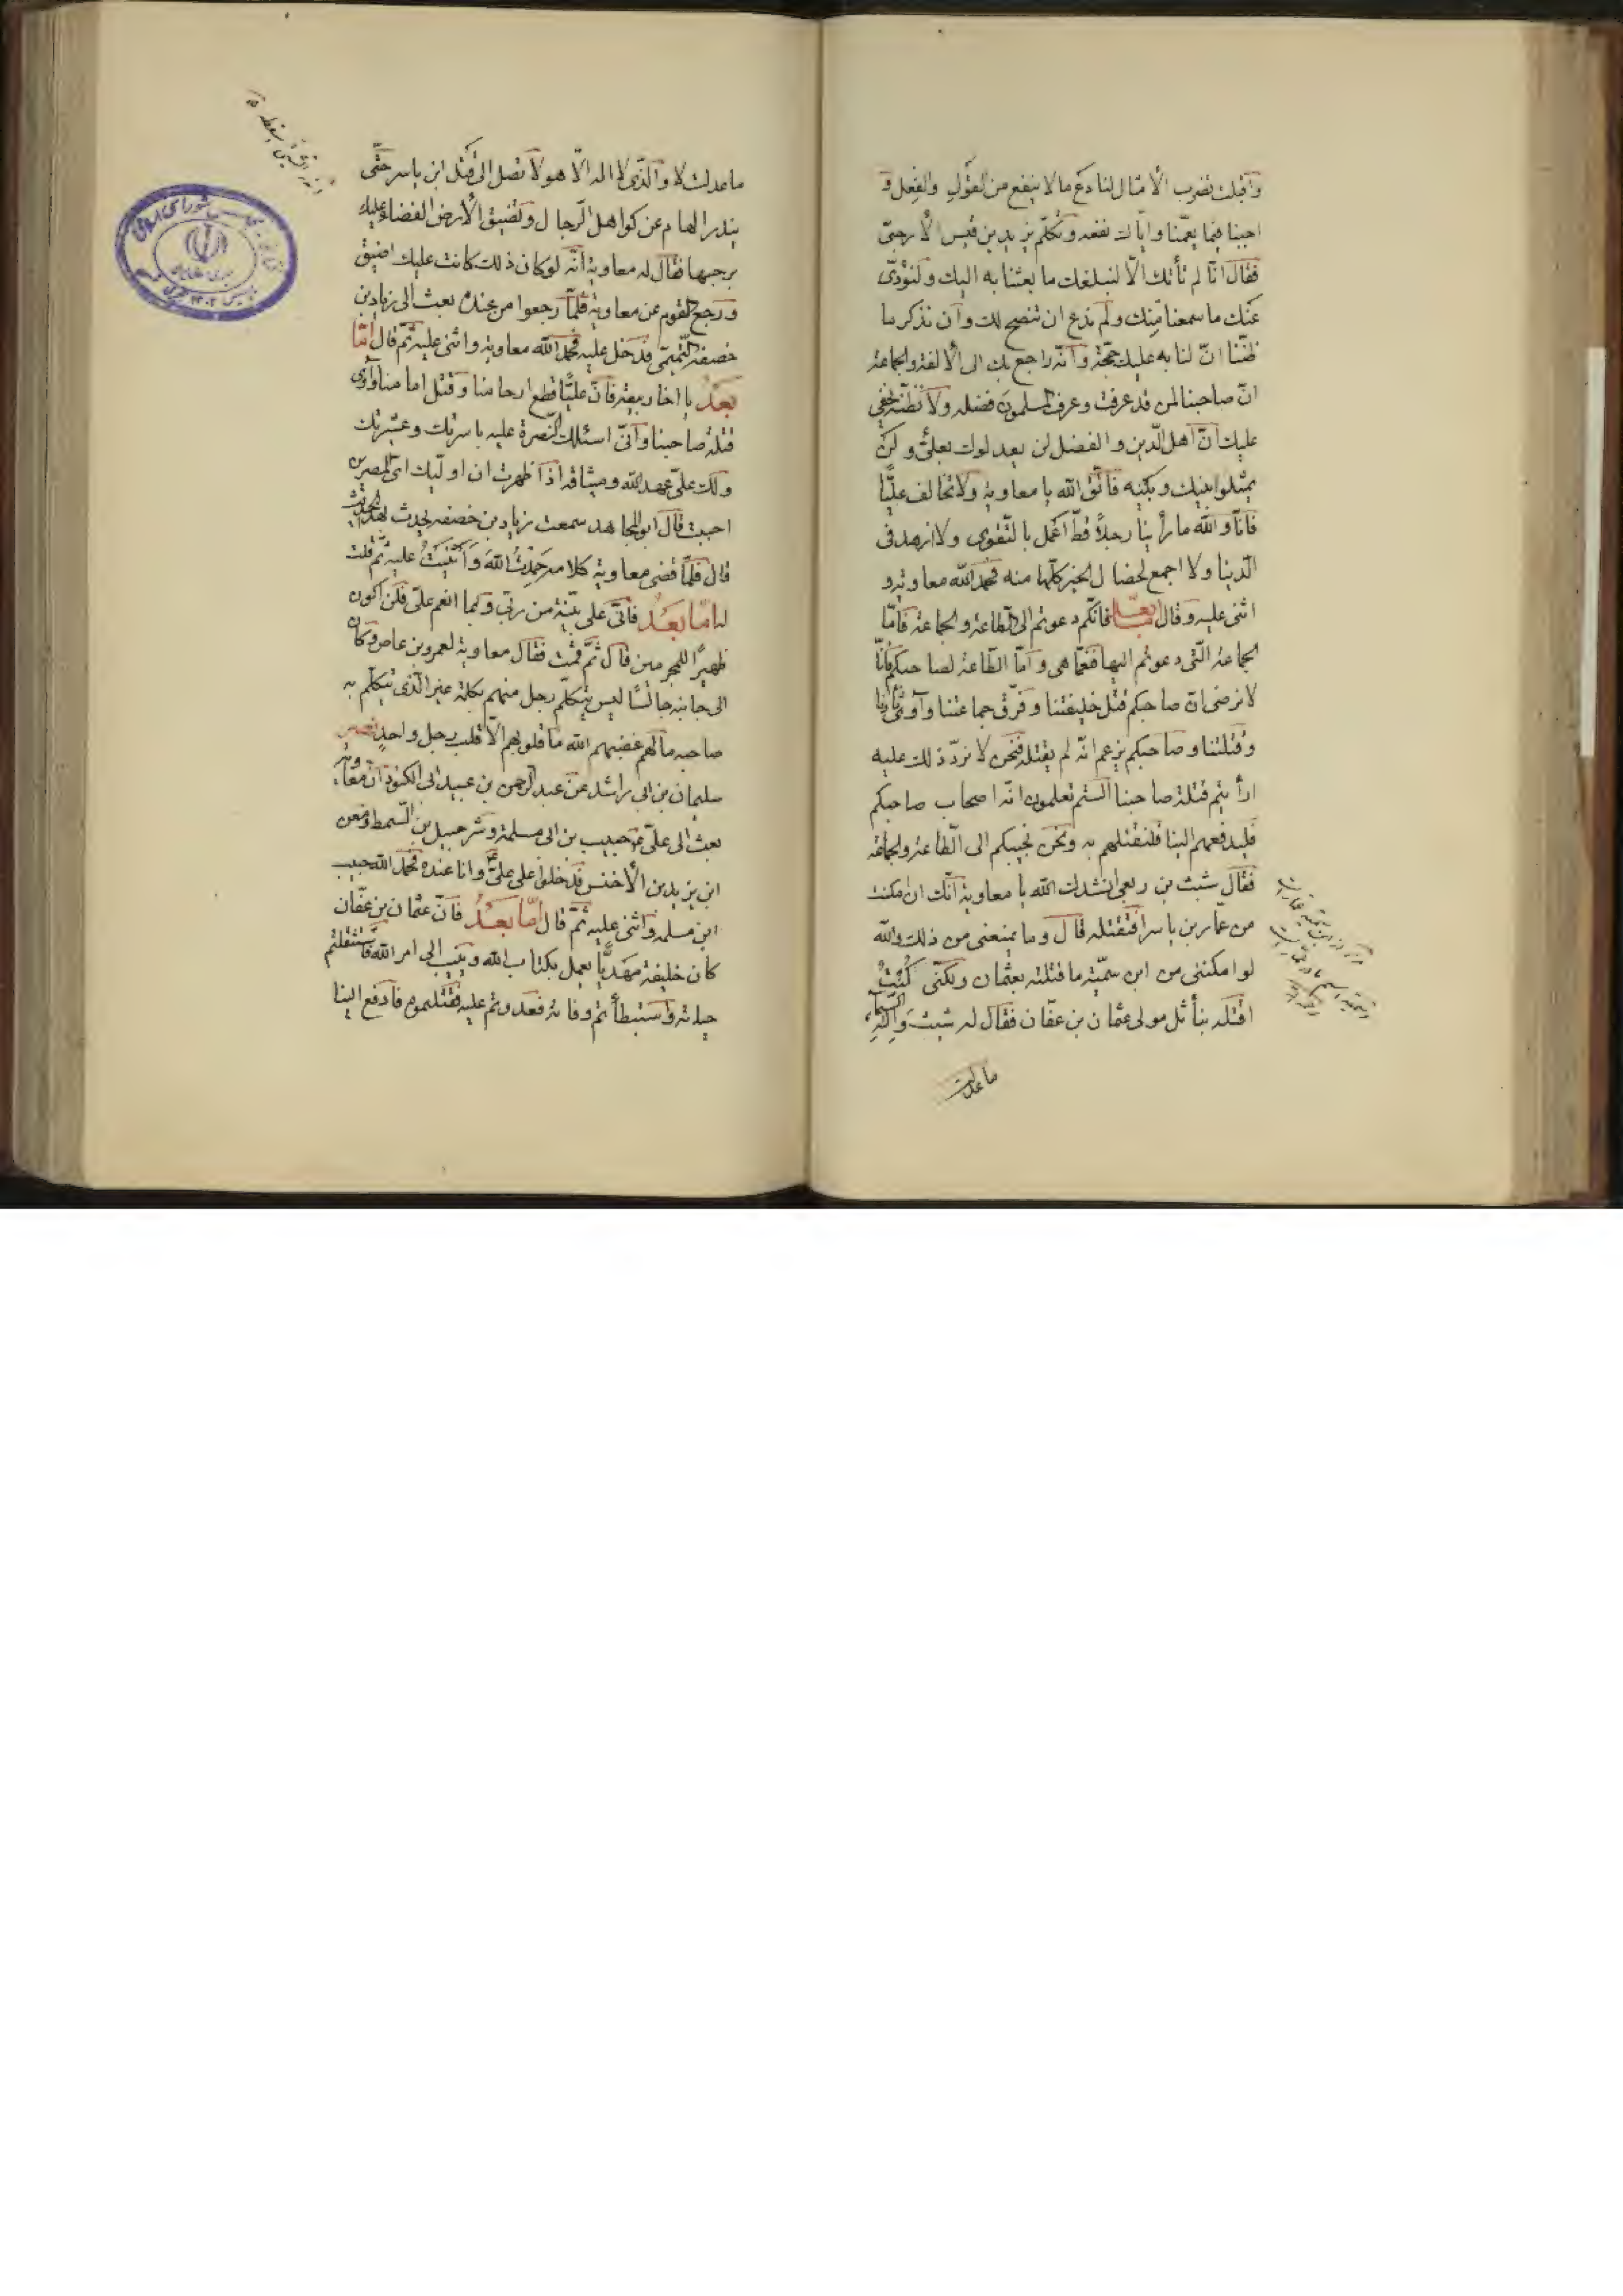 وأقبلت تضرب الأمثال لنا دع ما لا ينفع من القول والفعل و
اجبنا فيما يعمّنا وإيّاك نفعه وتكلّم يزيد بن قيس الأرحبيّ
فقال انّا لم نأتك الّا لنبلغك ما بعثنا به اليك ولنؤدّى
عنك ما سمعنا منك ولم ندع ان ننصح لك وأن نذكر ما
ظننّا انّ لنا به عليك حجّة وأنّه راجع بك الى الألفة والجماعة
انّ صاحبنا لمن قد عرفت وعرف المسلمون فضله ولا أظنّه يخفى
عليك أنّ أهل الدّين والفضل لن يعدلوك بعليّ ولن
يمثلوا بينك وبينه فاتّق الله يا معاوية ولا تخالف عليًّا
فانّا والله ما رأينا رجلاً قطّ أعمل بالتّقوى ولا ازهد فى
الدّنيا ولا اجمع لخصال الخير كلّها منه فحمد الله معاوية و
اثنى عليه وقال امّا بعد فانّكم دعوتم الى الطّاعة والجماعة فامّا
الجماعة الّتى دعوتم اليها فنعمّا هى وامّا الطّاعة لصاحبكم فانّا
لا نرضى انّ صاحبكم قتل خليفتنا وفرّق جماعتنا وآوى ثأرنا
وقتلتنا وصاحبكم يزعم انّه لم يقتله فنحن لا نردّ ذلك عليه
ارأيتم قتلة صاحبنا الستم تعلمون انّهم اصحاب صاحبكم
فليدفعهم الينا فلنقتلهم به ونحن نجيبكم الى الطّاعة والجماعة
فقال شبث بن ربعى انشدك الله يا معاوية أنّك ان امكنت
من عمّار بن ياسر افتقتله قال وما يمنعنى من ذلك والله
لو امكننى من ابن سميّة ما قتلته بعثمان ولكنّى كنت
اقتله بنائل مولى عثمان بن عفّان فقال له شبث واله السّماء
ما عدلت
ما عدلت لا والّذى لا اله الّا هو لا تصل الى قتل ابن ياسر حتّى
يندر الهام عن كواهل الرّجال وتضيق الأرض الفضاء عليك
برحبها فقال له معاوية انّه لو كان ذلك كانت عليك اضيق
ورجع القوم عن معاوية فلمّا رجعوا من عنده بعث الى زياد بن
خصفة التّميمى فدخل عليه فحمد الله معاوية واثنى عليه ثمّ قال امّا
بعد يا اخا ربيعة فانّ عليًّا قطع ارحامنا وقتل امامنا وآوى
قتلة صاحبنا وانّى اسئلك النّصرة عليه باسرتك وعشيرتك
ولك علىّ عهد الله وميثاقه اذا ظهرت ان اولّيك اىّ المصرين
احببت قال ابو المجاهد سمعت زياد بن خصفة يحدث بهذا الحديث
قال فلمّا قضى معاوية كلامه حمدت الله وأثنيت عليه ثمّ قلت
له امّا بعد فانّى على بيّنة من ربّى وبما انعم علىّ فلن اكون
ظهيرًا للمجرمين قال ثمّ قمت فقال معاوية لعمرو بن عاص وكان
الى جانبه جالسًا ليس يتكلّم رجل منهم بكلمة غير الّذى تتكلّم به
صاحبه ما لهم عضبهم الله ما قلوبهم الّا قلب رجل واحدٍ نصر
سليمان بن ابى راشد عن عبد الرّحمن بن عبيد ابى الكنود انّ معاوية
بعث الى علىّ حبيب بن ابى مسلمة وشرحبيل بن السّمط ومعن
ابن يزيد بن الأخنس فدخلوا على علىّ وانا عنده فحمد الله حبيب
ابن مسلمة واثنى عليه ثمّ قال امّا بعد فانّ عثمان بن عفّان
كان خليفة مهديًّا يعمل بكتاب الله وينيب الى امر الله فاستثقلتم
حياته واستبطأتم وفاته فعدوتم عليه فقتلتموه فادفع الينا